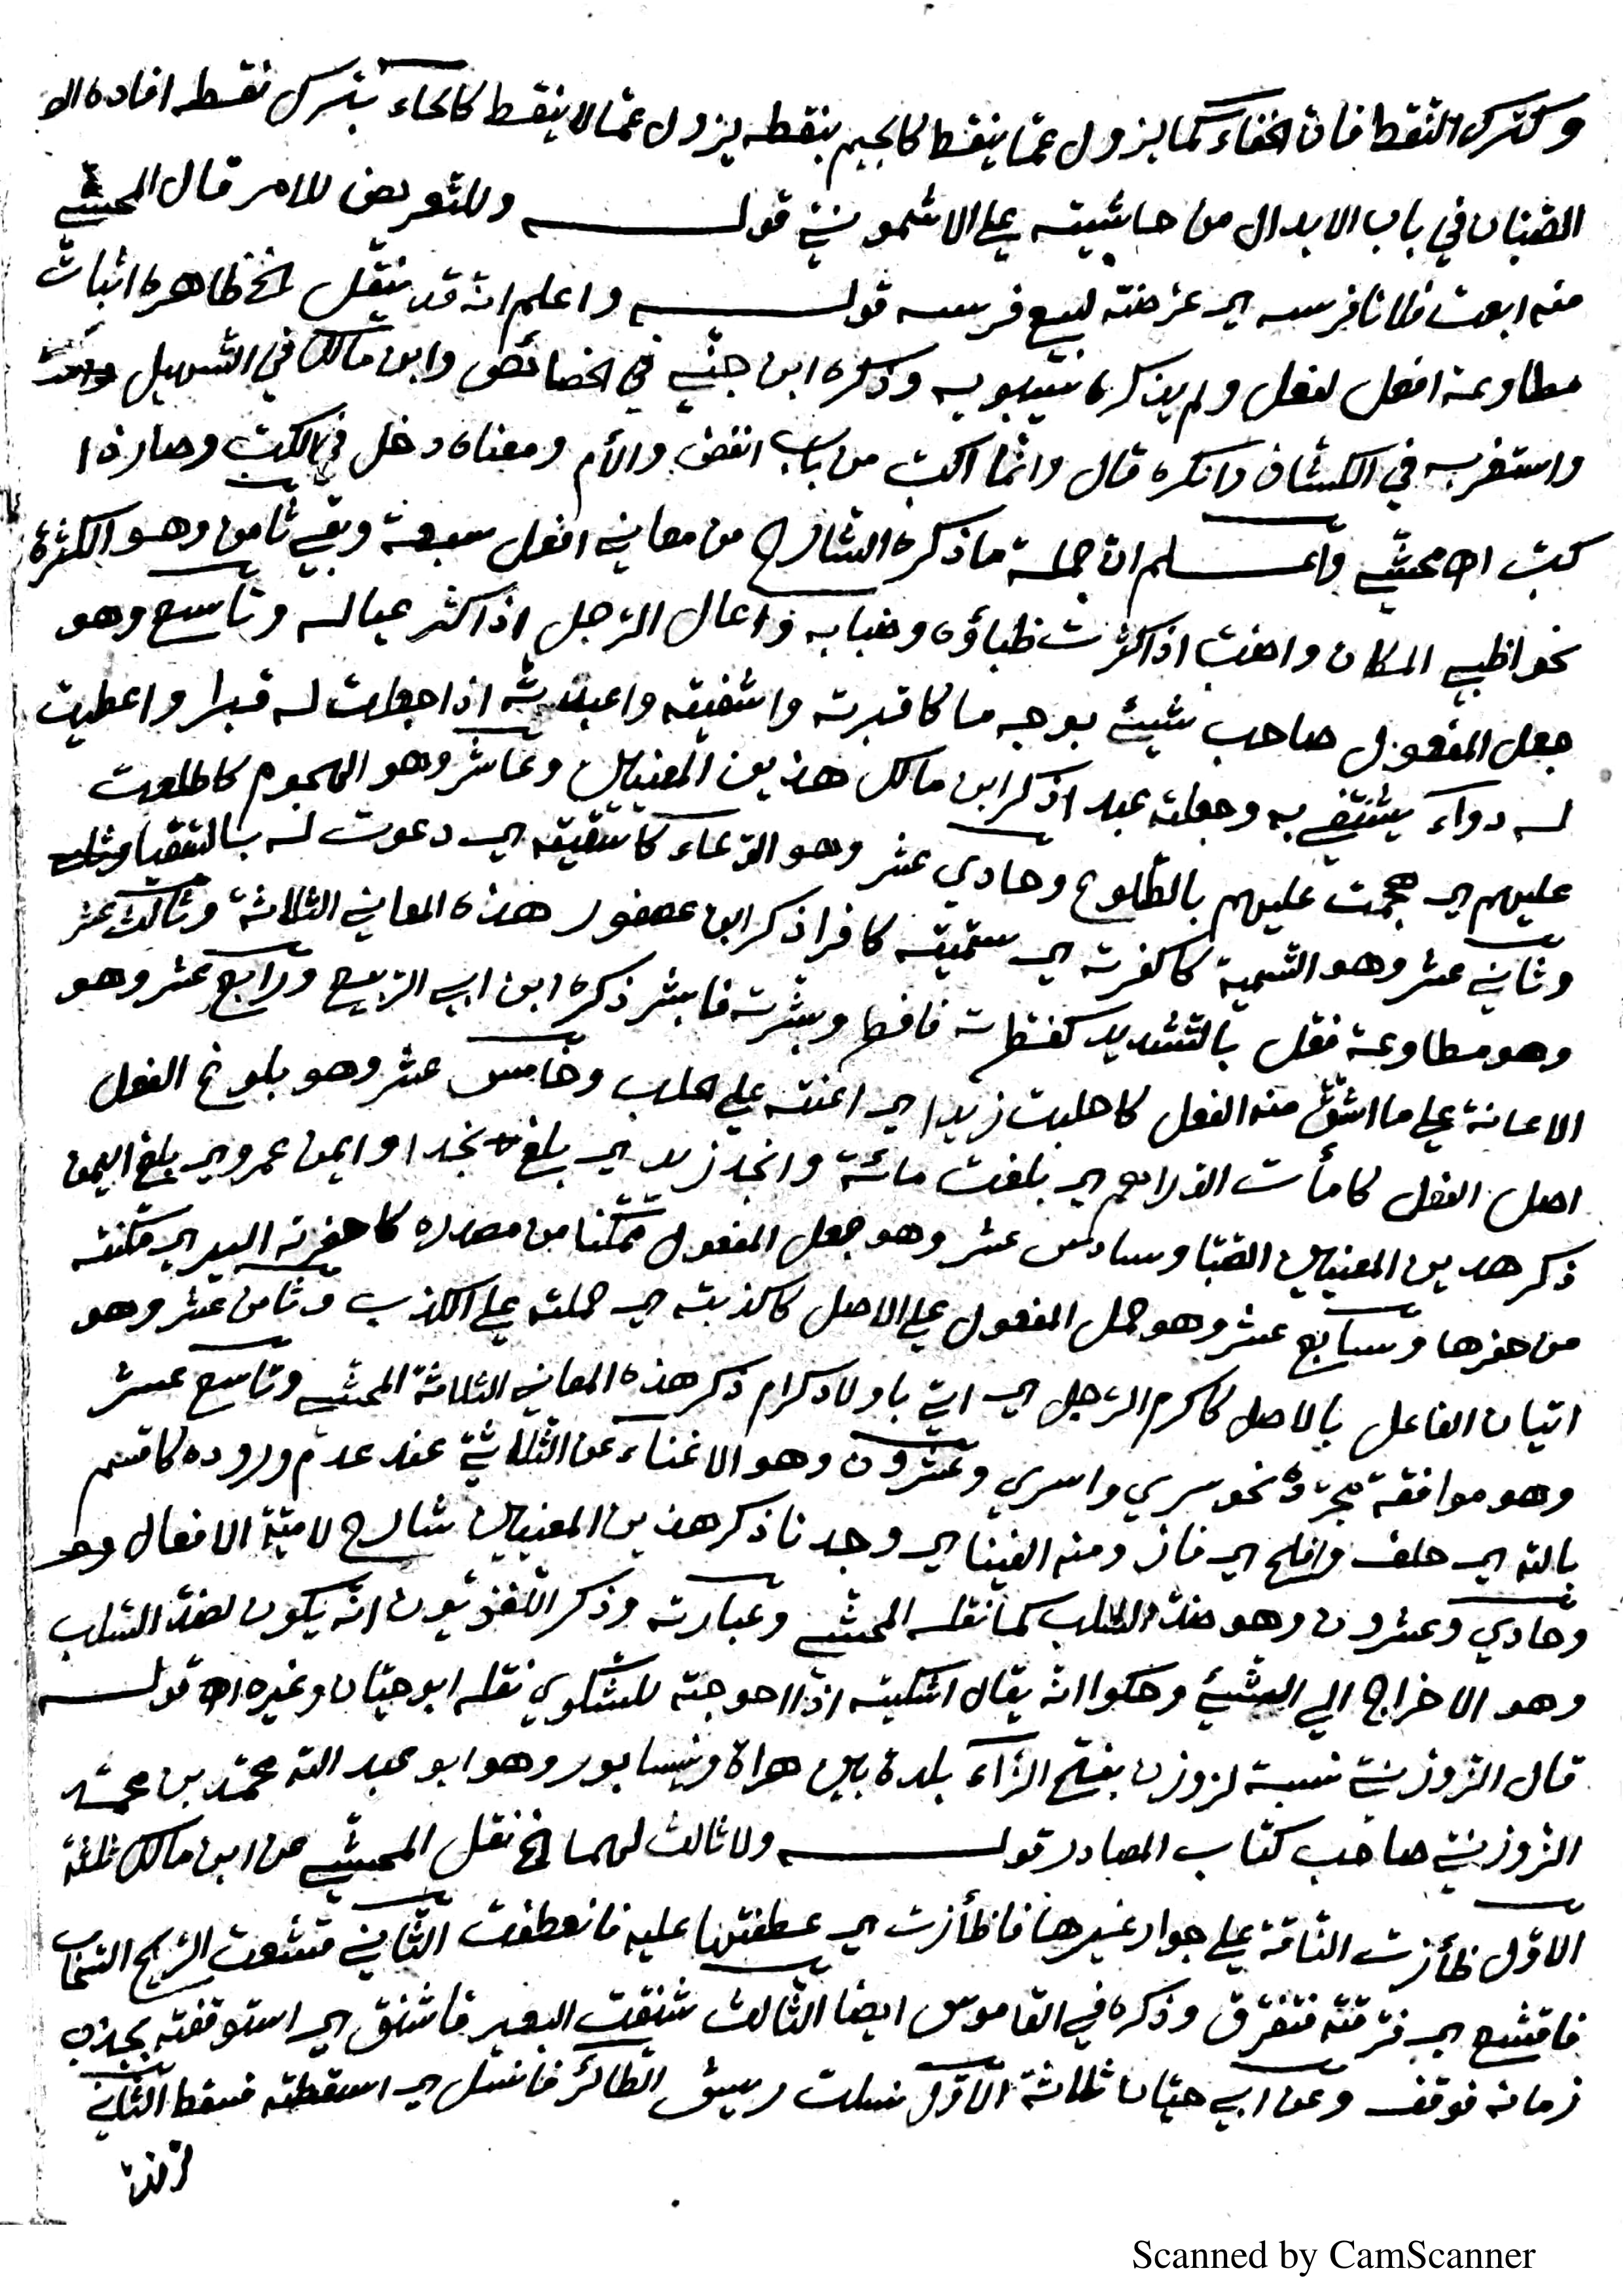 وكترك النقط فان الخفاء كما يزول عمّا ينقط كالجيم بنقطه يزول عمّا لا ينقط كالحاء بترك نقطه افاده
الصّبان في باب الابدال من حاشيته علي الاشمونيّ قوله وللتّعريض للامر قال المحشّي
منه ابعت فلانا فرسه اي عرضته لبيع فرسه قوله واعلم انه قد ينقل الخ ظاهره اثبات
مطاوعة افعل لفعل ولم يذكره سيبويه وذكره ابن جنّي في الخصائص وابن مالك في التسهيل
واستغربه في الكشّاف وانكره قال وانّما اكبّ من باب انفض والأم ومعناه دخل في الكبّ وصار ذا
كبّ اه محشّي واعلم انّ جملة ما ذكره الشارح من معاني افعل سبعة وبقي ثامن وهو الكثرة
نحو اظبي المكان واضبّ اذا كثرت ظباؤه وضبابه واعال الرّجل اذا كثر عياله وتاسع وهو
جعل المفعول صاحب شيئ بوجه ما كاقبرته واشفيته واعبدته اذا جعلت له قبرا واعطيت
له دواء يشتفي به وجعلته عبدا ذكر ابن مالك هذين المعنيين وعاشر وهو الهجوم كاطلعت
عليهم اي هجمت عليهم بالطّلوع وحادي عشر وهو الدّعاء كاسقيته اي دعوت له بالسّقيا
وثاني عشر وهو التسمية كاكفرته اي سمّيته كافرا ذكر ابن عصفور هذه المعاني الثلاثة وثالث عشر
وهو مطاوعة فعّل بالتّشديد كفطّرته فافطر وبشّرته فابشر ذكره ابن ابي الرّبيع ورابع عشر وهو
الاعانة علي ما اشتقّ منه الفعل كاحلبت زيدا اي اعنته علي الحلب وخامس عشر وهو بلوغ الفعل
اصل الفعل كامأت الدّراهم اي بلغت مائة وانجد زيد اي بلغ نجدا وايمن عمرو اي بلغ اليمن
ذكر هذين المعنيين الصّبّا وسادس عشر وهو جعل المفعول ممكّنا من مصدره كاحفرته البير اي مكّنته
من حفرها وسابع عشر وهو حمل المفعول علي الاصل كاكذبته اي حملته علي الكذب وثامن عشر وهو
اتيان الفاعل بالاصل كاكرم الرّجل اي اتي باولاد كرام ذكر هذه المعاني الثلاثة المحشّي وتاسع عشر
وهو موافقة مجرّده نحو سري واسري وعشرون وهو الاغناء عن الثلاثيّ عند عدم وروده كاقسم
بالله اي حلف وافلح اي فاز ومنه الفينا اي وجدنا ذكر هذين المعنيين شارح لاميّة الافعال
وحادي وعشرون وهو ضدّ السّلب كما نقله المحشّي وعبارته وذكر اللّغويّون انّه يكون لضدّ السّلب
وهو الاخراج الي الشّيئ وحكوا انّه يقال اشكيته اذا احوجته للشكوي نقله ابو حيّان وغيره اه قوله
قال الزّوزنيّ نسبة لزوزن بفتح الزّاء بلدة بين هراة ونيسابور وهو ابو عبد الله محمّد بن محمّد
الزّوزنيّ صاحب كتاب المصادر قوله ولا ثالث لهما الخ نقل المحشّي عن ابن مالك ثلثة
الاوّل ظأرت النّاقة علي حوار غيرها فاظأرت اي عطفتها عليه فانعطفت الثّاني قشعت الرّيح السّحاب
فاقشع اي فرّقته فتفرّق وذكره في القاموس ايضا الثّالث شنقت البعير فاشنق اي استوقفته بجذب
زمامه فوقف وعن ابي حيّان ثلاثة الاوّل نسلت ريش الطّائر فانسل اي اسقطته فسقط الثّاني
نزفت
Scanned by CamScanner